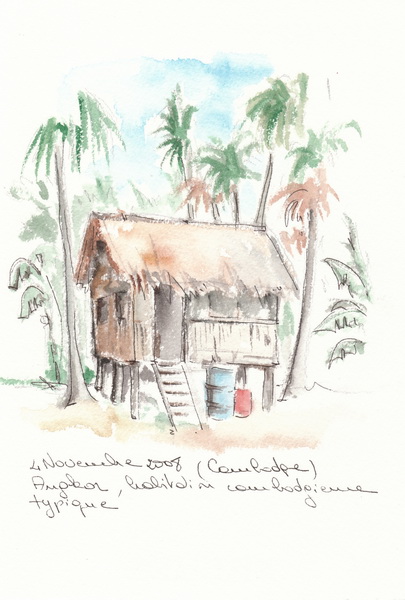 4 Novembre 2008 (Cambodge)
Angkor, habitation cambodgienne
typique